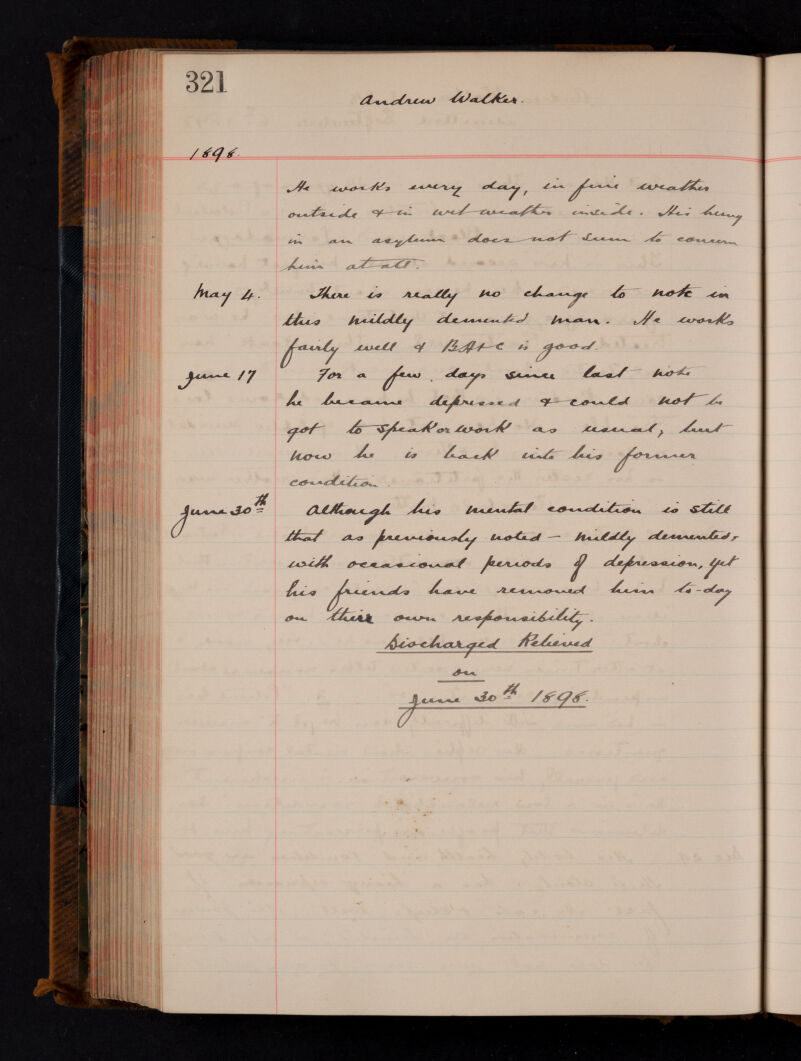 321
Andrew Walker.
1898.
He works every day, in fine weather
outside & in wet weather inside. His being
in an asylum does not seem to concern
him at all.
May 4. There is really no change to note in
this mildly demented man. He works
fairly well & B.H & C is good.
June 17 For a few days since last note
he became depressed & could not be
got to speak or work as usual, but
now he is back into his former
condition.
June 30th Although his mental condition is still
that as previously noted - mildly demented,
with occasional periods of depression, yet
his friends have removed him to-day
on their own responsibility.
Discharged Relieved
on
June 30th 1898.